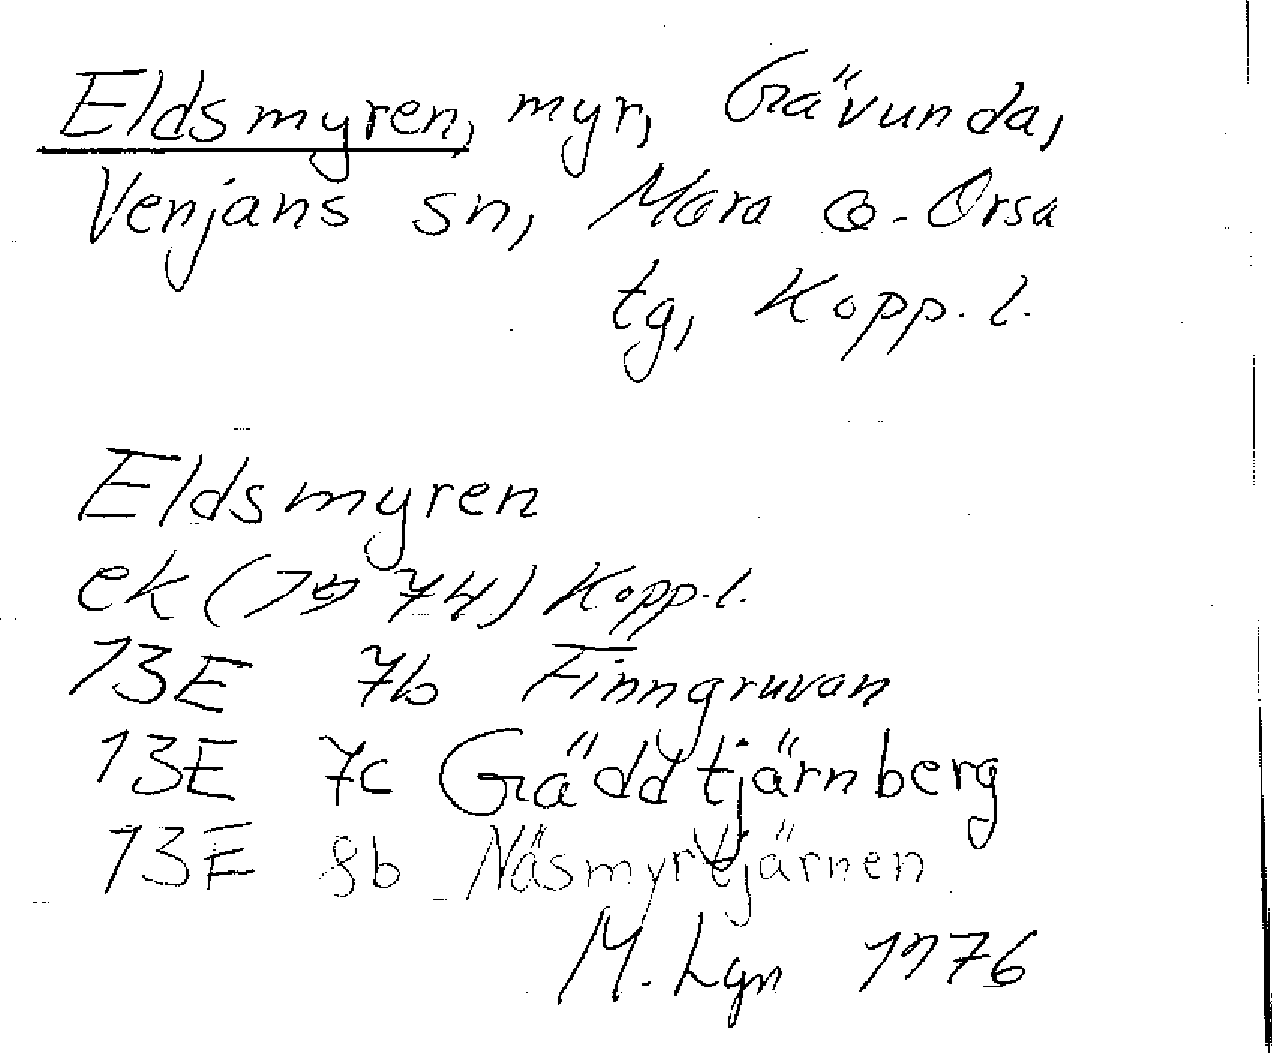 Eldsmyren, myr, Grävunda,
Venjans sn, Mora o. Orsa
tg, Kopp. l.
Eldsmyren
ek (1974) Kopp. l.
13E 7b Finngruvan
13E 7c Gäddtjärnberg
13E 8b Näsmyrtjärnen
M. Lgn 1976